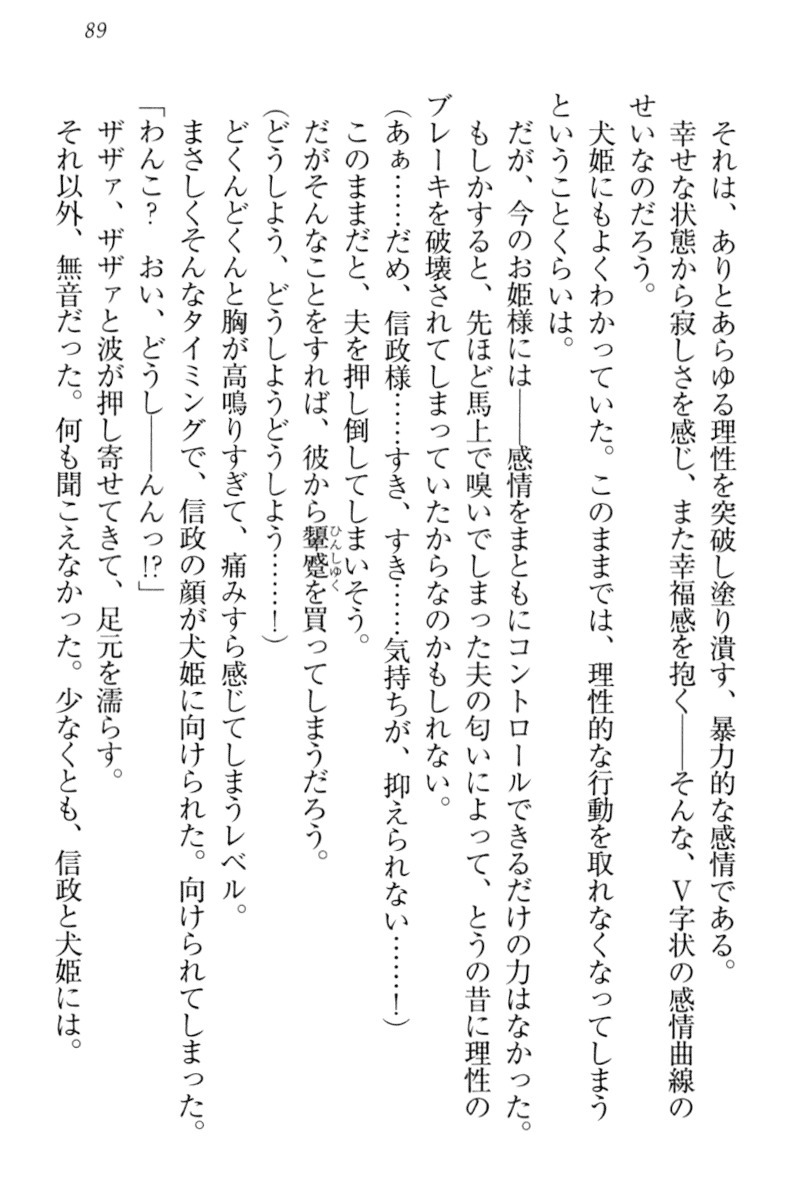 89
それは、ありとあらゆる理性を突破し塗り潰す、暴力的な感情である。
幸せな状態から寂しさを感じ、また幸福感を抱く――そんな、V字状の感情曲線の
せいなのだろう。
犬姫にもよくわかっていた。このままでは、理性的な行動を取れなくなってしまう
ということくらいは。
だが、今のお姫様には――感情をまともにコントロールできるだけの力はなかった。
もしかすると、先ほど馬上で嗅いでしまった夫の匂いによって、とうの昔に理性の
ブレーキを破壊されてしまっていたからなのかもしれない。
(あぁ……だめ、信政様……すき、すき……気持ちが、抑えられない……！)
このままだと、夫を押し倒してしまいそう。
だがそんなことをすれば、彼から顰蹙ひんしゆくを買ってしまうだろう。
(どうしよう、どうしようどうしよう……！)
どくんどくんと胸が高鳴りすぎて、痛みすら感じてしまうレベル。
まさしくそんなタイミングで、信政の顔が犬姫に向けられた。向けられてしまった。
「わんこ？　おい、どうし――んんっ!?」
ザザァ、ザザァと波が押し寄せてきて、足元を濡らす。
それ以外、無音だった。何も聞こえなかった。少なくとも、信政と犬姫には。